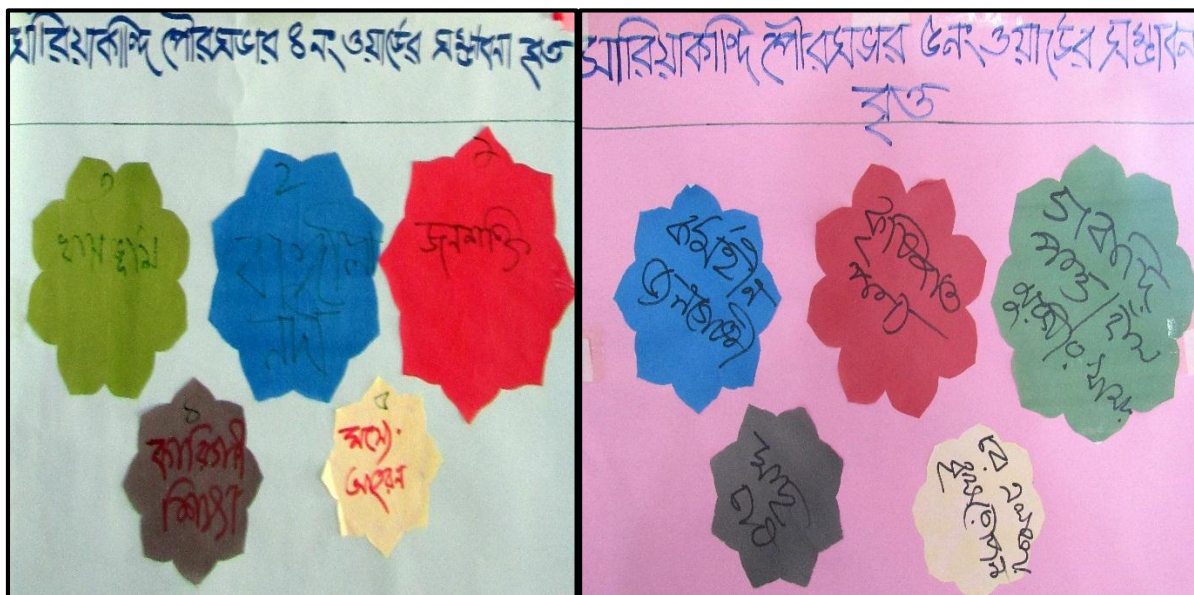 সারিয়াকান্দি পৌরসভার ৪নং ওয়ার্ডের সম্ভাবনা বৃত্ত
৩
খাস ভূমি
২
বাঙ্গালী
নদী
১
জনশক্তি
৪
কারিগরী
শিক্ষা
৫
মৎস্য
আহরন
সারিয়াকান্দি পৌরসভার ৫নং ওয়ার্ডের সম্ভাবনা
বৃত্ত
কর্মহীন
জনগোষ্ঠী
কৃষিজাত
পন্য
গবাদি
পশু/হাঁস
মুরগীর খামার
মাছ
চাষ
বৃক্ষরোপন